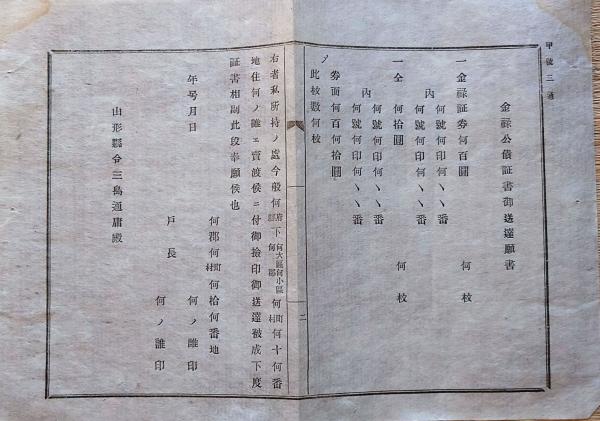 甲號三通
金祿公債証書御送達願書
一金祿証券何百圓　何枚
内　何號何印何ヽヽ番
何號何印何ヽヽ番
一仝　何拾圓　何枚
内　何號何印何ヽヽ番
何號何印何ヽヽ番
〆　券面何百何拾圓
此枚數何枚
二
右者私所持ノ處今般何府縣下何大區何小區何郡何町村何十何番
地住何ノ誰ェ賣渡候ニ付御撿印御送達被成下度
証書相副此段奉願候也
何郡何町村何拾何番地
年号月日　何ノ誰印
戸長　何ノ誰印
山形縣令三島通庸殿